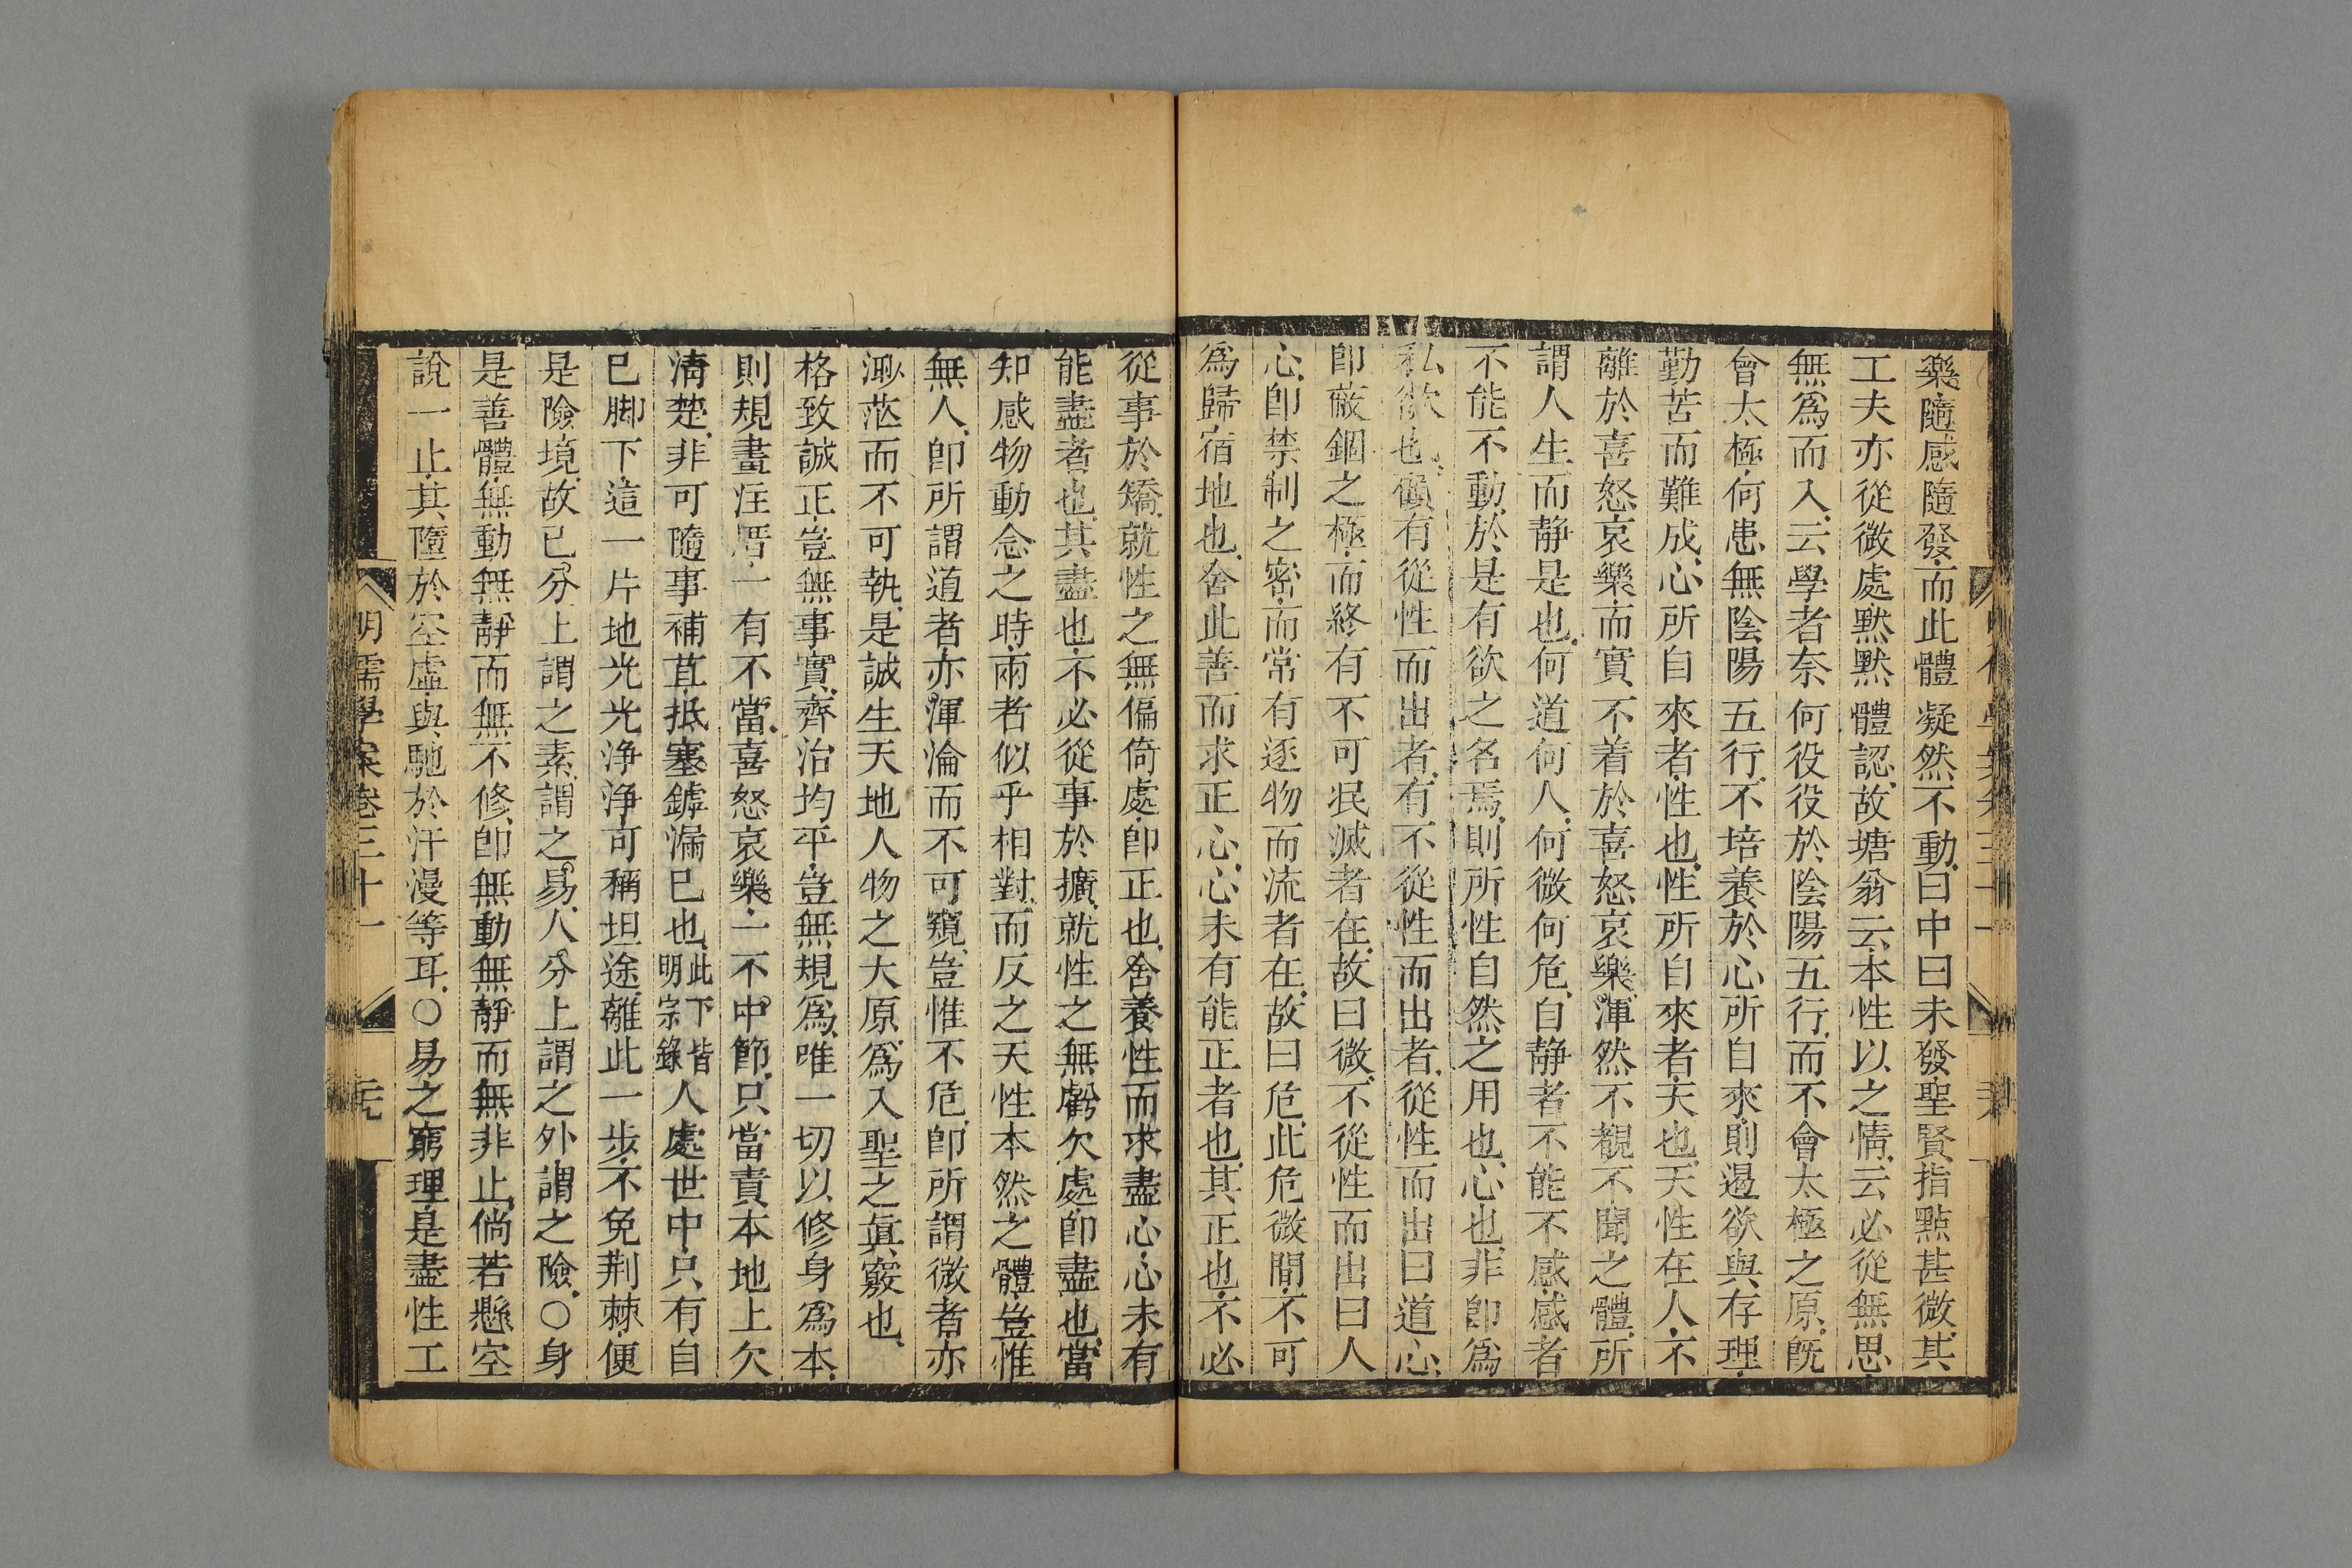 樂、隨感隨發、而此體凝然不動、曰中曰未發、聖賢指點甚微、其
工夫亦從微處默默體認、故塘翁云、本性以之情、云必從無思、
無爲而入、云學者奈何役役於陰陽五行、而不會太極之原、旣
會太極、何患無陰陽五行、不培養於心所自來、則遏欲與存理、
勤苦而難成、心所自來者、性也、性所自來者、天也、天性在人、不
離於喜怒哀樂、而實不着於喜怒哀樂、渾然不覩不聞之體、所
謂人生而静是也、何道何人、何微何危、自静者不能不感、感者
不能不動、於是有欲之名焉、則所性自然之用也、心也、非卽爲
私欲也、顧有從性而出者、有不從性而出者、從性而出曰道心、
卽蔽錮之極、而終有不可泯滅者在、故曰微、不從性而出曰人
心、卽禁制之密、而常有逐物而流者在、故曰危、此危微間、不可
爲歸宿地也、舍此善而求正心、心未有能正者也、其正也、不必
從事於矯、就性之無偏倚處、卽正也、舍養性而求盡心、心未有
能盡者也、其盡也、不必從事於擴、就性之無虧欠處、卽盡也、當
知感物動念之時、兩者似乎相對、而反之天性本然之體、豈惟
無人、卽所謂道者、亦渾淪而不可窺、豈惟不危、卽所謂微者、亦
渺茫而不可執、是誠生天地人物之大原、爲入聖之眞竅也、
格致誠正、豈無事實、齊治均平、豈無規爲、唯一切以修身爲本、
則規畫注厝、一有不當、喜怒哀樂、一不中節、只當責本地上欠
淸楚、非可隨事補苴、抵塞罅漏已也、此下皆明宗錄人處世中、只有自
已脚下、這一片地光光浄浄、可稱坦途、離此一步、不免荆棘、便
是險境、故已分上謂之素、謂之易、人分上謂之外、謂之險、○身
是善體、無動無靜而無不修、卽無動無靜而無非止、倘若懸空
說一止、其墮於空虛、與馳於汗漫等耳、○易之窮理、是盡性工
明儒學案卷三十一